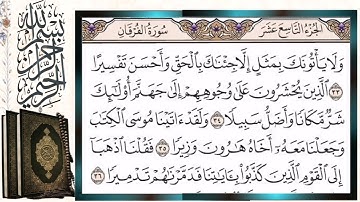 الجُزْءُ التَّاسِعَ عَشَرَ
سُورَةُ الْفُرْقَانِ
بِسْمِ اللَّهِ الرَّحْمَٰنِ الرَّحِيمِ
وَلَا يَأْتُونَكَ بِمَثَلٍ إِلَّا جِئْنَٰكَ بِٱلْحَقِّ وَأَحْسَنَ تَفْسِيرًا
٣٣ ٱلَّذِينَ يُحْشَرُونَ عَلَىٰ وُجُوهِهِمْ إِلَىٰ جَهَنَّمَ أُو۟لَٰٓئِكَ
شَرٌّ مَّكَانًا وَأَضَلُّ سَبِيلًا ٣٤ وَلَقَدْ ءَاتَيْنَا مُوسَى ٱلْكِتَٰبَ
وَجَعَلْنَا مَعَهُۥٓ أَخَاهُ هَٰرُونَ وَزِيرًا ٣٥ فَقُلْنَا ٱذْهَبَآ
إِلَى ٱلْقَوْمِ ٱلَّذِينَ كَذَّبُوا۟ بِـَٔايَٰتِنَا فَدَمَّرْنَٰهُمْ تَدْمِيرًا ٣٦